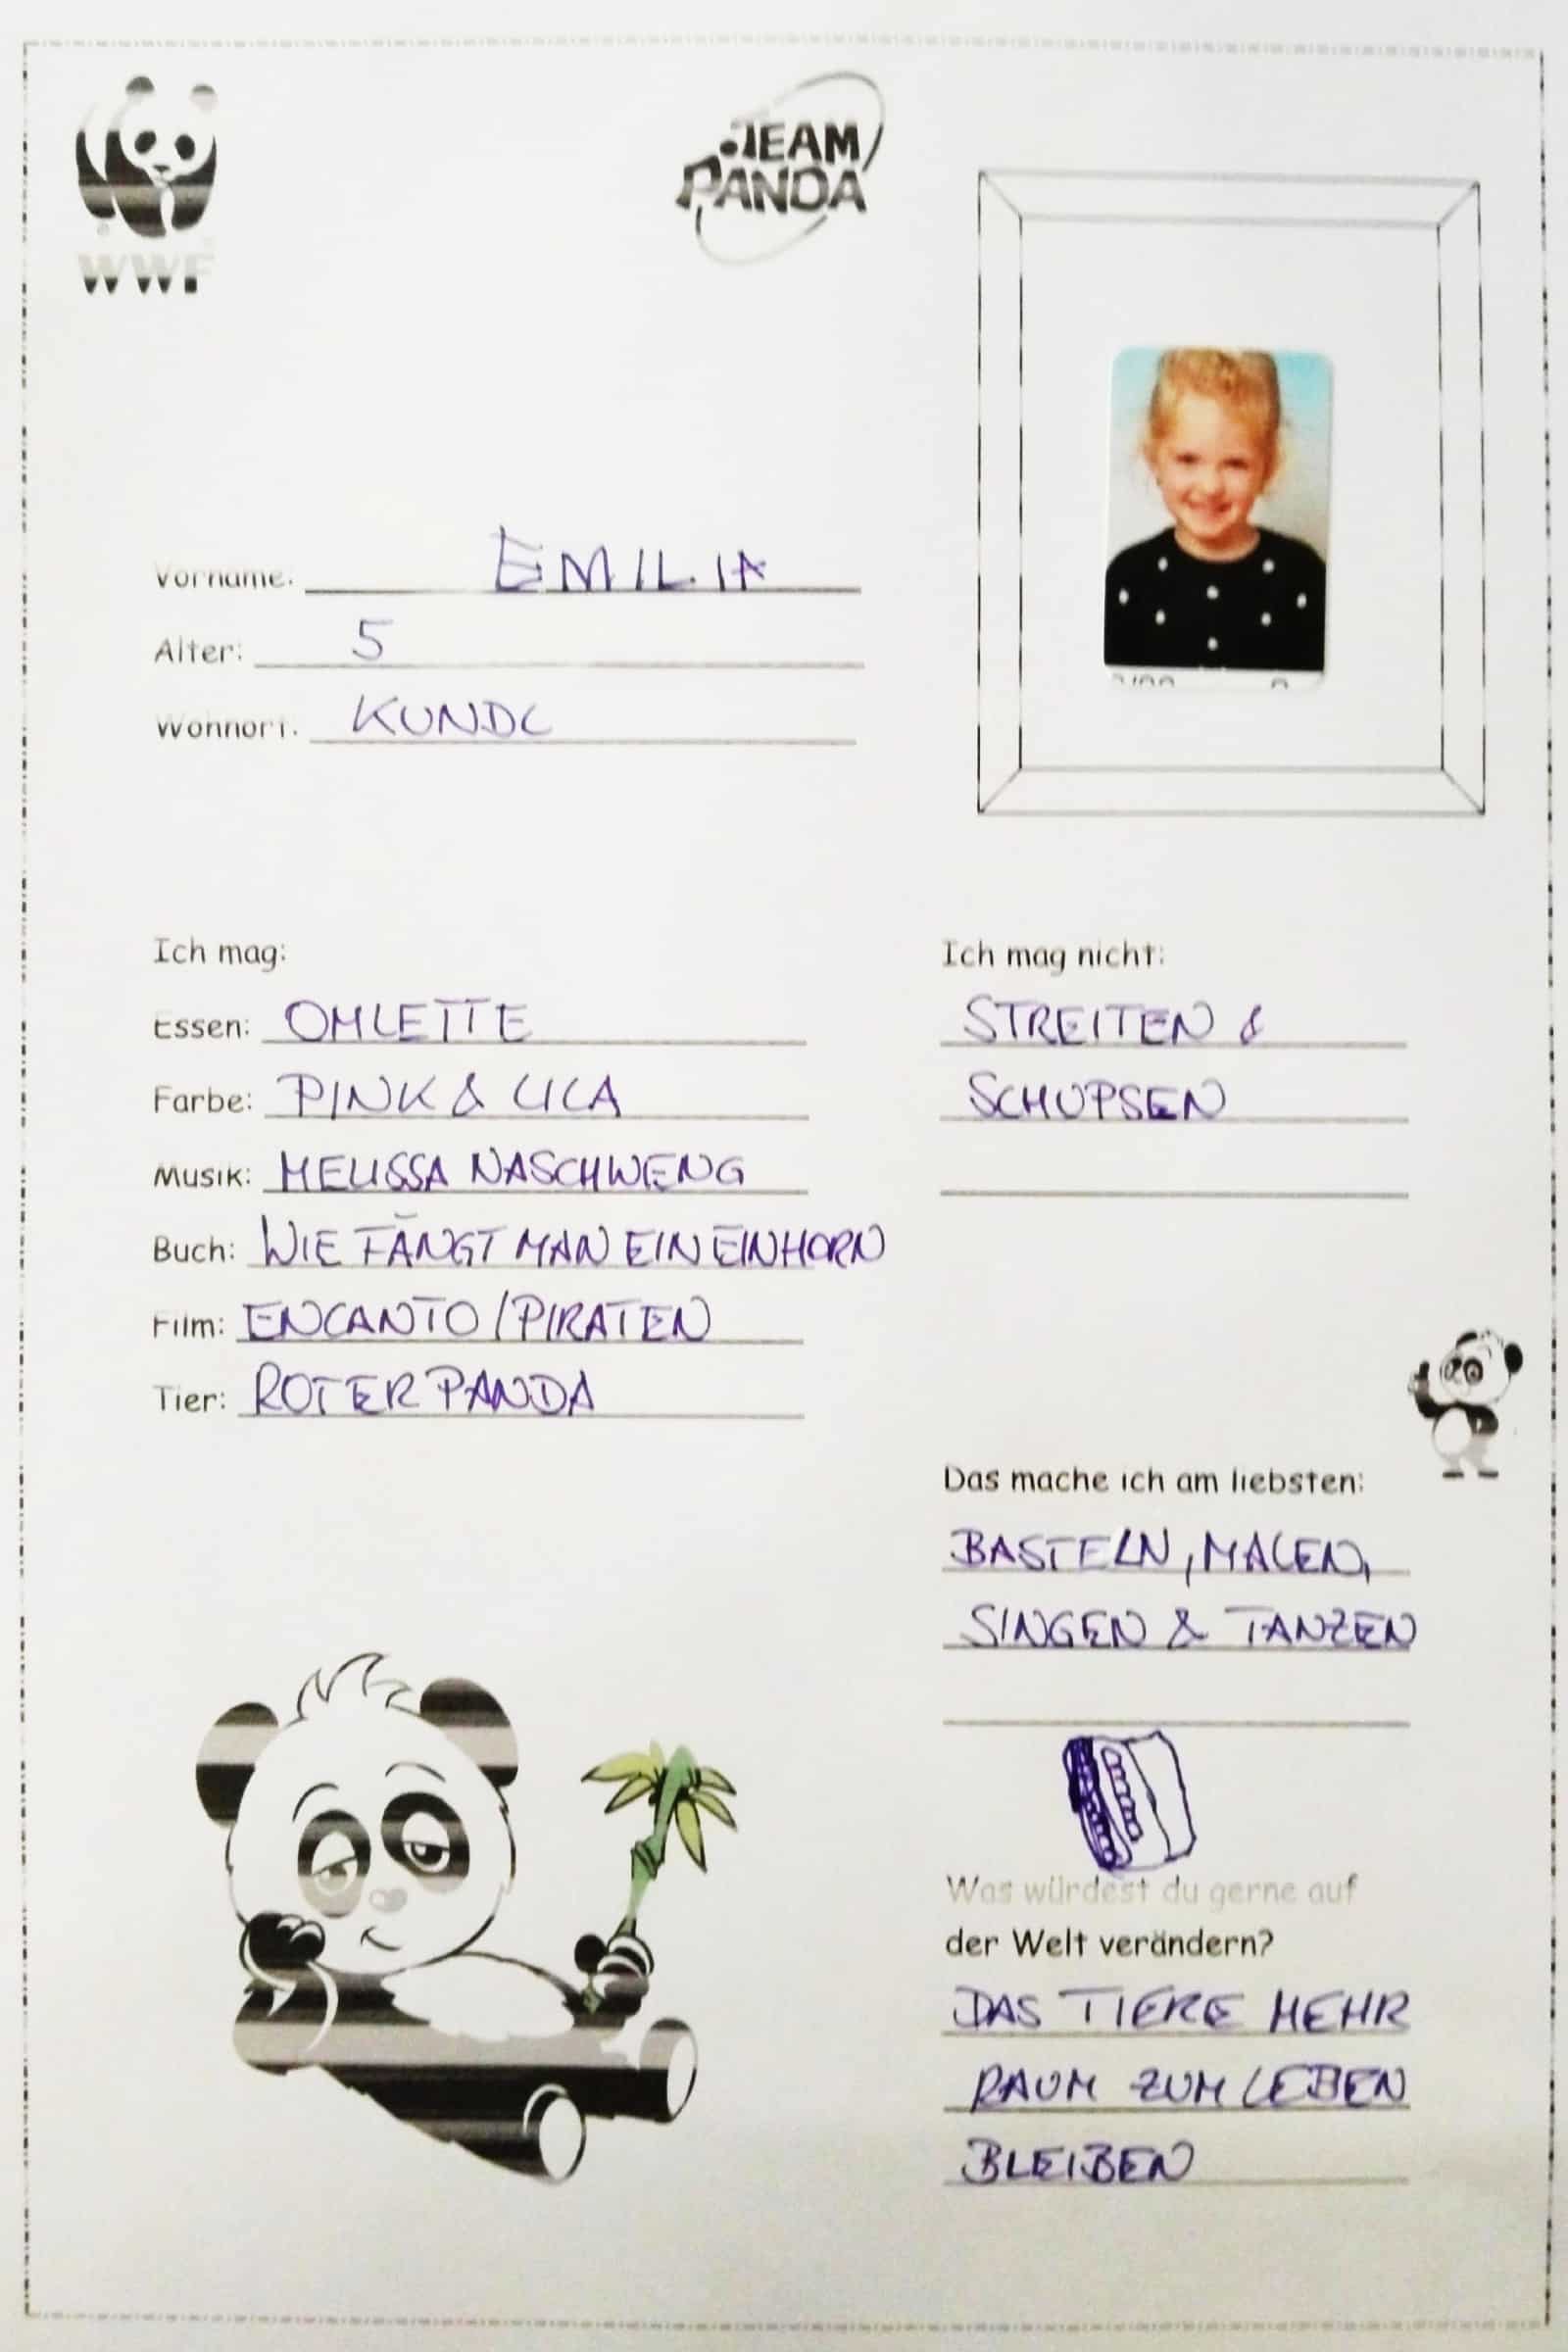 WWF
TEAM
PANDA
Vorname: EMILIA
Alter: 5
Wohnort: KUNDL
Ich mag:
Essen: OMLETTE
Farbe: PINK & LILA
Musik: MELISSA NASCHWENG
Buch: WIE FÄNGT MAN EIN EINHORN
Film: ENCANTO / PIRATEN
Tier: ROTER PANDA
Ich mag nicht:
STREITEN &
SCHUPSEN
Das mache ich am liebsten:
BASTELN, MALEN,
SINGEN & TANZEN
Was würdest du gerne auf
der Welt verändern?
DAS TIERE MEHR
RAUM ZUM LEBEN
BLEIBEN